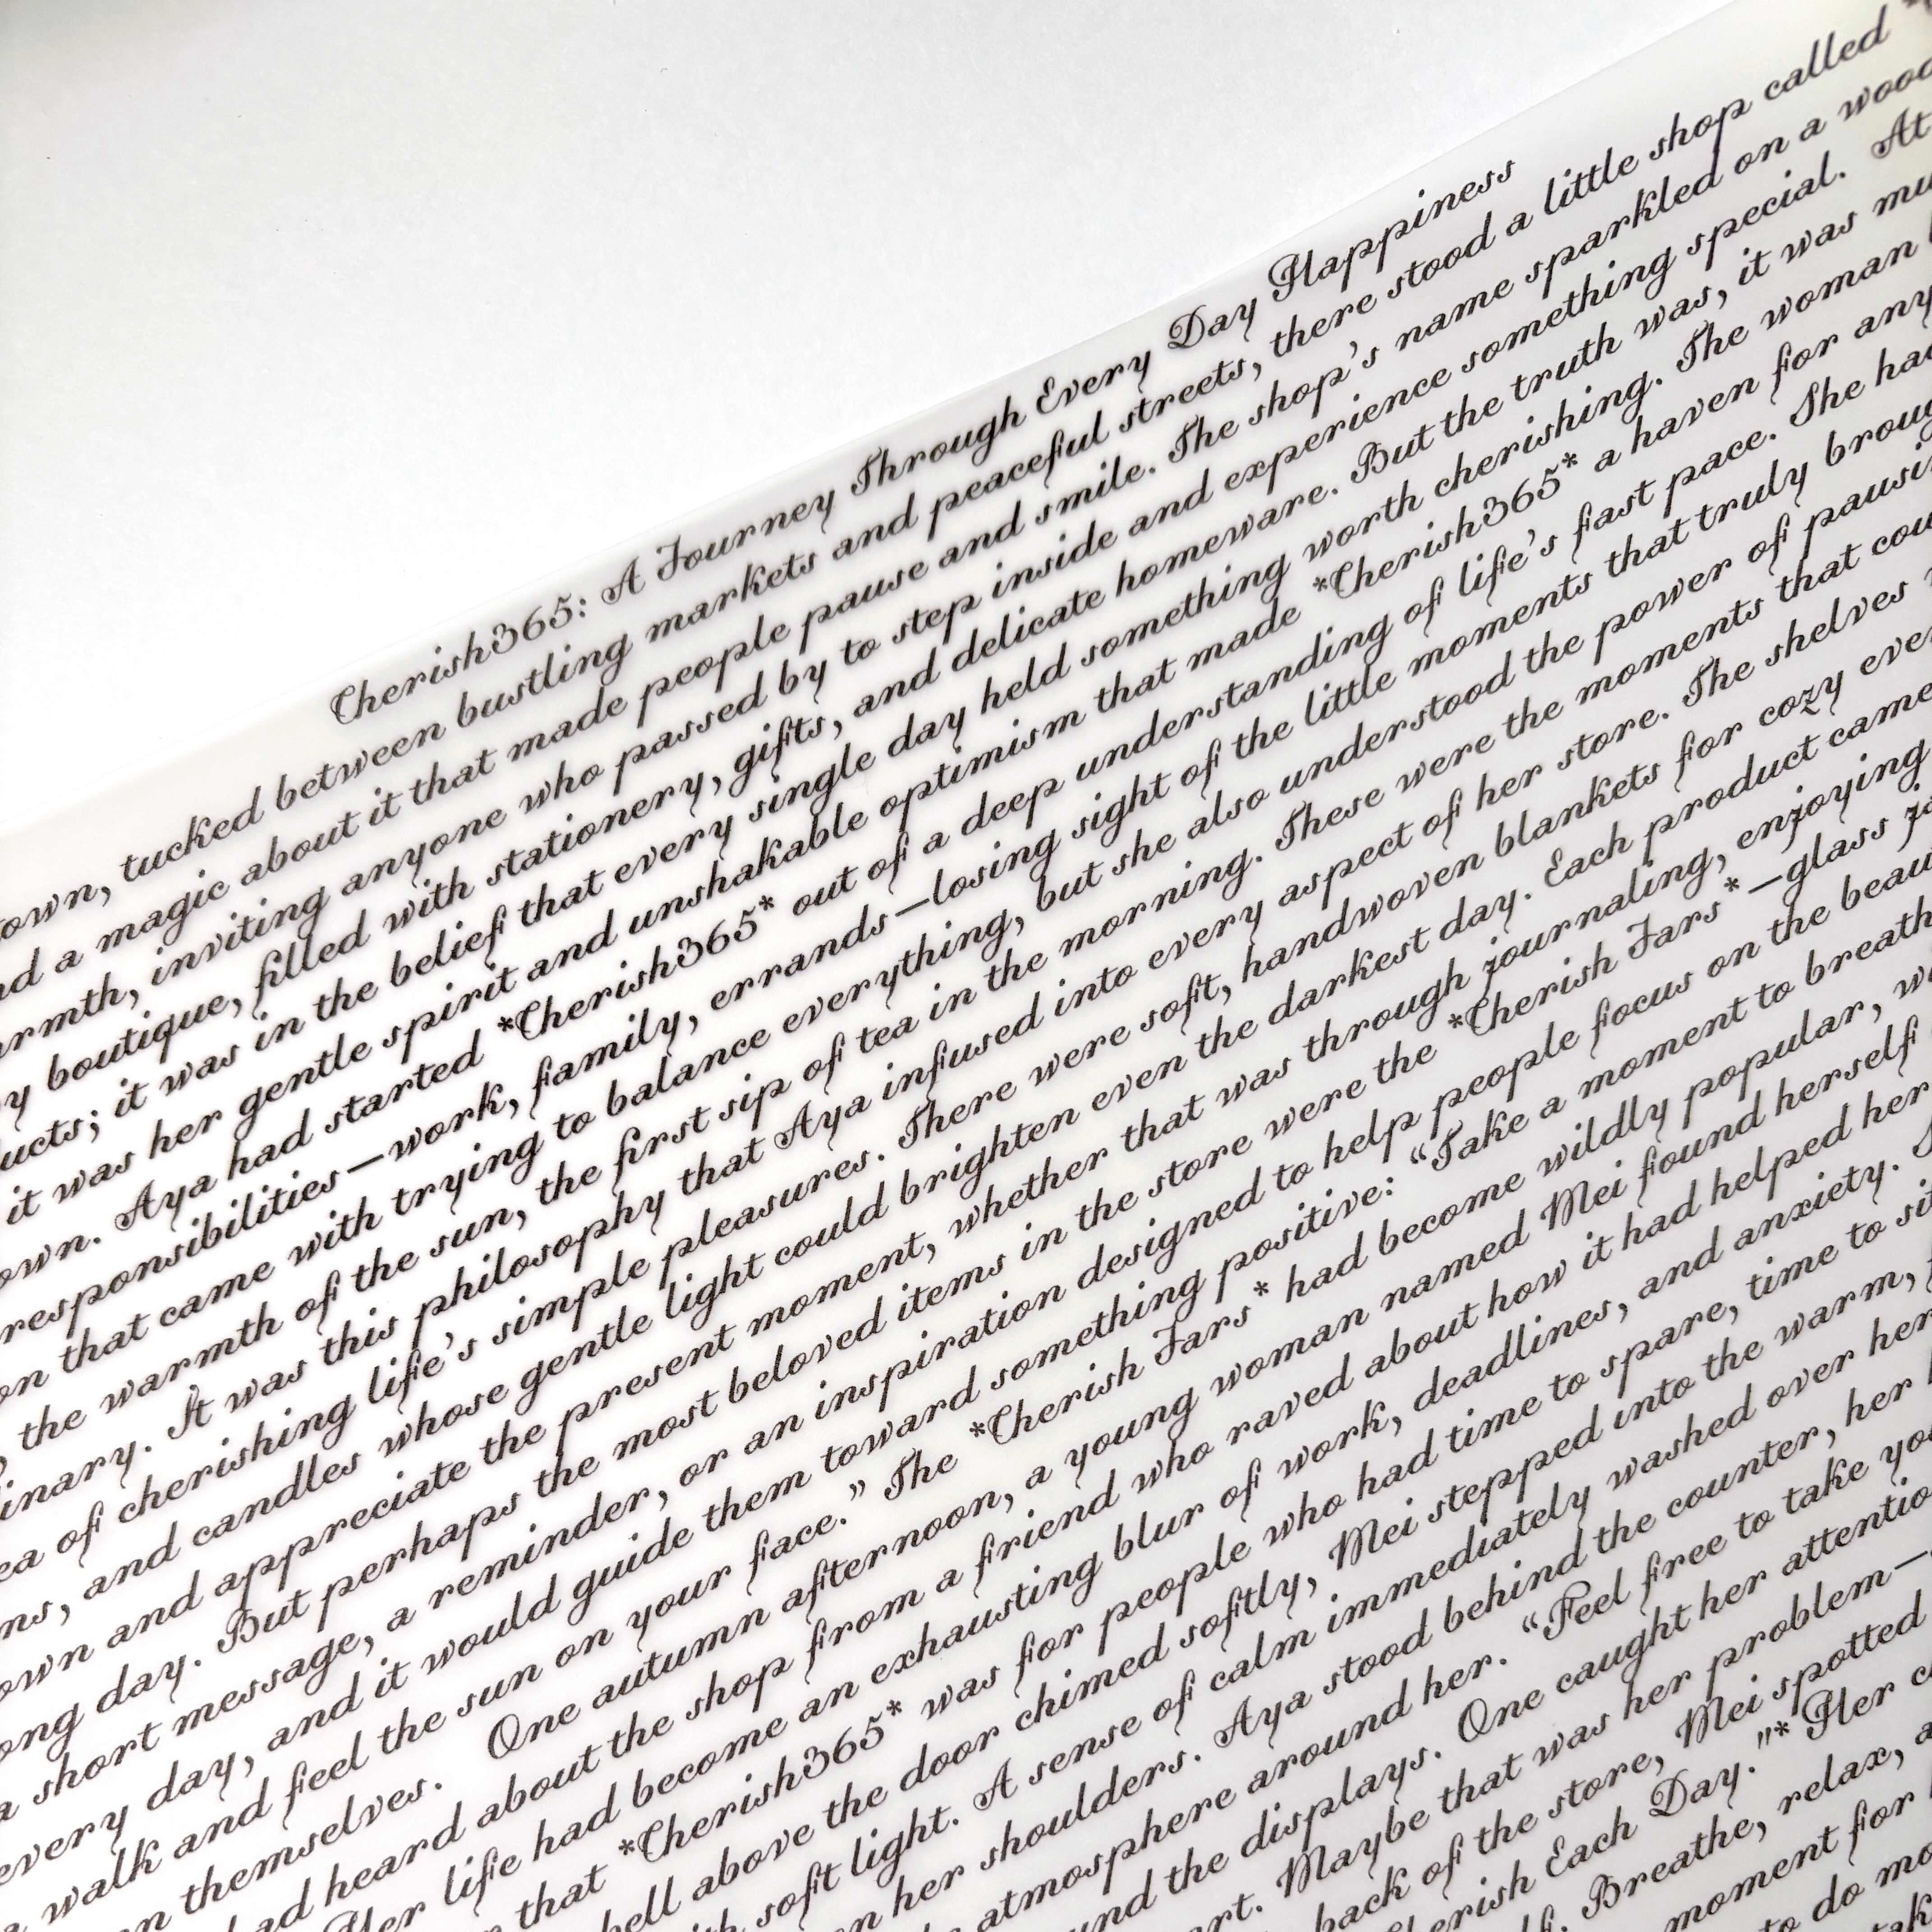 Cherish365: A Journey Through Every Day Happiness
town, tucked between bustling markets and peaceful streets, there stood a little shop called
a magic about it that made people pause and smile. The shop's name sparkled on a
inviting anyone who passed by to step inside and experience something special. At
boutique, filled with stationery, gifts, and delicate homeware. But the truth was, it was
it was in the belief that every single day held something worth cherishing. The woman
it was her gentle spirit and unshakable optimism that made *Cherish365* a haven for
own. Aya had started *Cherish365* out of a deep understanding of life's fast pace. She
responsibilities—work, family, errands—losing sight of the little moments that truly
that came with trying to balance everything, but she also understood the power of
the warmth of the sun, the first sip of tea in the morning. These were the moments that
It was this philosophy that Aya infused into every aspect of her store. The shelves
of cherishing life's simple pleasures. There were soft, handwoven blankets for cozy
and candles whose gentle light could brighten even the darkest day. Each product came
own and appreciate the present moment, whether that was through journaling, enjoying
day. But perhaps the most beloved items in the store were the *Cherish Jars*—glass
a short message, a reminder, or an inspiration designed to help people focus on the
every day, and it would guide them toward something positive: “Take a moment to
walk and feel the sun on your face.” The *Cherish Jars* had become wildly popular,
themselves. One autumn afternoon, a young woman named Mei found herself
heard about the shop from a friend who raved about how it had helped her
Her life had become an exhausting blur of work, deadlines, and anxiety.
that *Cherish365* was for people who had time to spare, time to
above the door chimed softly, Mei stepped into the warm,
soft light. A sense of calm immediately washed over her
her shoulders. Aya stood behind the counter, her
atmosphere around her. “Feel free to take
the displays. One caught her
Maybe that was her problem—
back of the store, Mei spotted
Each Day."* Her
Breathe, relax,
moment for
to do